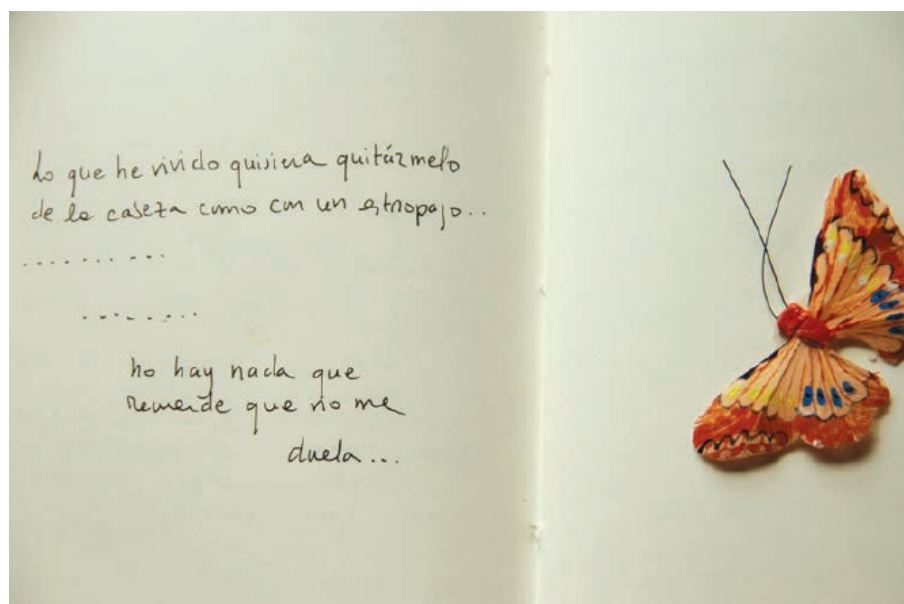 Lo que he vivido quisiera quitármelo
de la cabeza como con un estropajo..
..........
........
no hay nada que
recuerde que no me
duela...